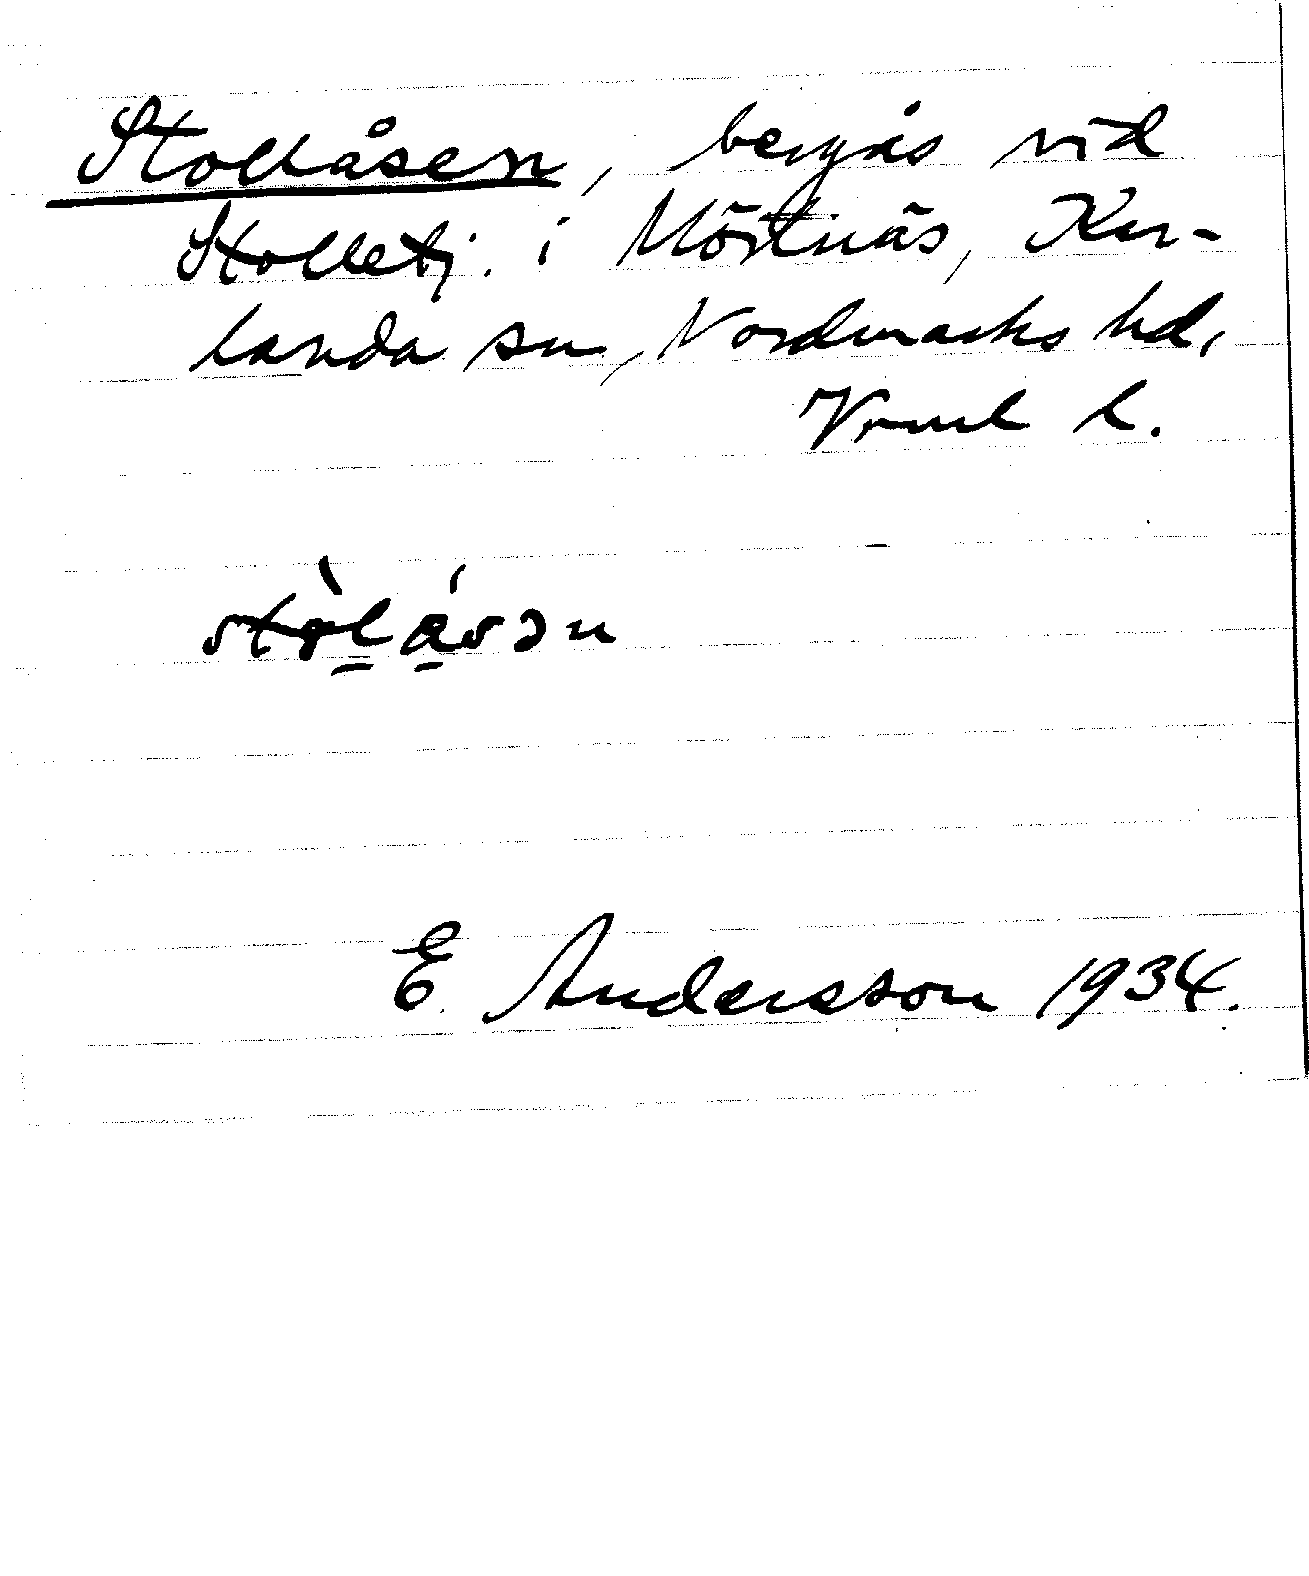 Stollåsen, bergås vid
Stolletj. i Mörtnäs, Kar-
landa sn, Nordmarks hd,
Vrml l.
stòlásən
E. Andersson 1934.